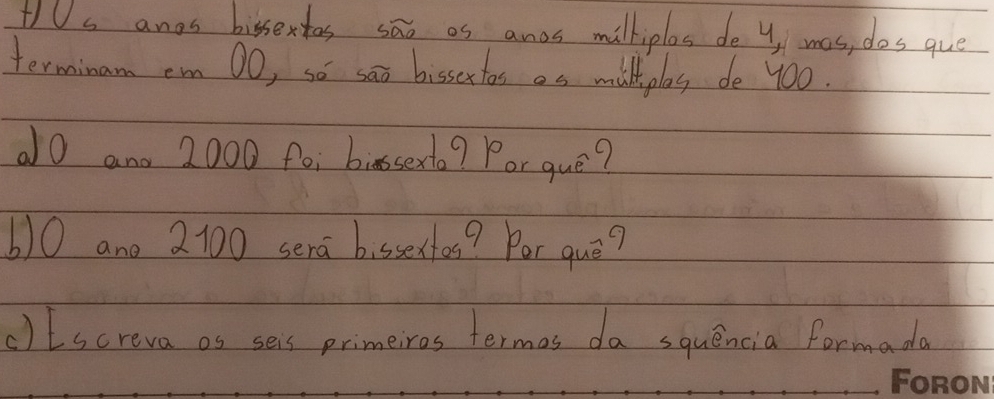 1) Os anos bissextos são os anos múltiplos de 4, mas, dos que
terminam em 00, só são bissextos os múltiplos de 400.
a) O ano 2000 foi bissexto? Por quê?
b) O ano 2100 será bissextos? Por quê?
c) Escreva os seis primeiros termos da squência formada
FORON